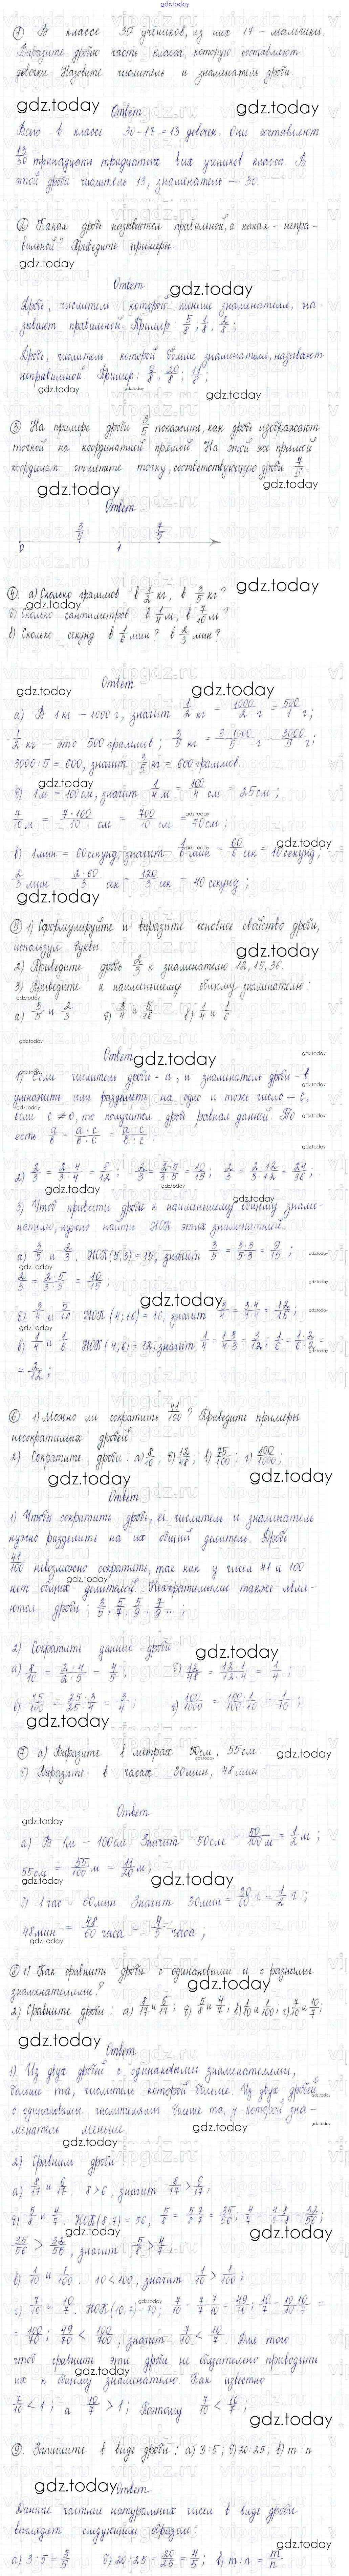 gdz.today
① В классе 30 учеников, из них 17 – мальчики.
Выразите дробью часть класса, которую составляют
девочки. Назовите числитель и знаменатель дроби.
gdz.today Ответ gdz.today
Всего в классе 30-17=13 девочек. Они составляют
13/30 тринадцать тридцатых всех учеников класса. В
этой дроби числитель 13, знаменатель — 30.
② Какая дробь называется правильной, а какая – непра-
вильной? Приведите примеры.
gdz.today
Ответ gdz.today
Дробь, числитель которой меньше знаменателя, на-
зывают правильной. Пример: 5/8; 1/8; 2/8;
Дробь, числитель которой больше знаменателя, называют
неправильной. Пример: 20/8; 11/8;
gdz.today gdz.today
③ На примере дроби 3/5 покажите, как дроби изображают
точкой на координатной прямой. На этой же прямой
отметьте точку, соответствующую дроби 7/5.
gdz.today gdz.today
Ответ
3/5 7/5
0 1
④. а) Сколько граммов в 1/2 кг, в 3/5 кг? gdz.today
б) Сколько сантиметров в 1/4 м, в 7/10 м?
gdz.today
в) Сколько секунд в 1/6 мин? в 2/3 мин?
gdz.today Ответ gdz.today
а) В 1 кг – 1000 г, значит 1/2 кг = 1000/2 г = 500/1 г;
1/2 кг – это 500 граммов; 3/5 кг = 3·1000/5 г = 3000/5 г;
3000:5 = 600, значит 3/5 кг = 600 граммов.
gdz.today
б) 1м = 100см, значит 1/4 м = 100/4 см = 25 см;
7/10 м = 7·100/10 см = 700/10 см = 70 см;
в) 1мин = 60секунд, значит 1/6 мин = 60/6 сек = 10секунд; gdz.today
2/3 мин = 2·60/3 сек = 120/3 сек = 40 секунд;
gdz.today
⑤ 1) Сформулируйте и выразите основное свойство дроби,
используя буквы. gdz.today
2) Приведите дробь 2/3 к знаменателю 12, 15, 36.
3) Приведите к наименьшему общему знаменателю:
а) 3/5 и 2/3 б) 3/4 и 5/16 в) 1/4 и 1/6
Ответ gdz.today
1) Если числитель дроби - a, и знаменатель дроби - b
умножить или разделить на одно и тоже число – c,
если c ≠ 0, то получится дробь равная данной. То
есть a/b = a·c/b·c = a:c/b:c.
2) 2/3 = 2·4/3·4 = 8/12; 2/3 = 2·5/3·5 = 10/15; 2/3 = 2·12/3·12 = 24/36;
gdz.today gdz.today
3) Чтоб привести дроби к наименьшему общему знаме-
нателю, нужно найти НОК этих знаменателей.
а) 3/5 и 2/3. НОК(5;3)=15, значит 3/5 = 3·3/5·3 = 9/15;
gdz.today
2/3 = 2·5/3·5 = 10/15;
gdz.today
б) 3/4 и 5/16 НОК(4;16) = 16, значит 3/4 = 3·4/4·4 = 12/16;
в) 1/4 и 1/6. НОК(4,6) = 12, значит 1/4 = 1·3/4·3 = 3/12; 1/6 = 1·2/6·2 =
= 2/12;
⑥ 1) Можно ли сократить 41/100? Приведите примеры
несократимых дробей.
2) Сократите дроби: а) 8/10; б) 12/48; в) 75/100; г) 100/1000;
gdz.today gdz.today
Ответ
1) Чтобы сократить дробь, её числитель и знаменатель
нужно разделить на их общий делитель. Дробь
41/100 невозможно сократить, так как у чисел 41 и 100
нет общих делителей. Несократимыми также явля-
ются дроби: 3/5; 5/7; 5/9; 7/9 ...;
2) Сократить данные дроби
gdz.today
а) 8/10 = 2·4/2·5 = 4/5; б) 12/48 = 12·1/12·4 = 1/4;
в) 75/100 = 25·3/25·4 = 3/4; г) 100/1000 = 100·1/100·10 = 1/10;
gdz.today
⑦ а) Выразите в метрах 50см, 55см. gdz.today
б) Выразите в часах 30мин, 48мин
gdz.today Ответ
а) В 1м – 100см. Значит 50см = 50/100 м = 1/2 м;
55см = 55/100 м = 11/20 м;
gdz.today gdz.today
б) 1 час = 60мин. Значит 30мин = 30/60 ч = 1/2 ч;
48мин = 48/60 часа = 4/5 часа;
gdz.today
⑧ 1) Как сравнить дроби с одинаковыми и с разными
знаменателями? gdz.today
2) Сравните дроби: а) 8/17 и 6/17; б) 5/8 и 4/7; в) 1/10 и 1/100; г) 7/10 и 10/7;
gdz.today Ответ
1) Из двух дробей с одинаковыми знаменателями,
больше та, числитель которой больше. Из двух дробей
с одинаковыми числителями больше та, у которой зна-
менатель меньше. gdz.today
gdz.today
2) Сравним дроби
а) 8/17 и 6/17. 8>6, значит 8/17 > 6/17;
б) 5/8 и 4/7. НОК(8,7) = 56, 5/8 = 5·7/8·7 = 35/56; 4/7 = 4·8/7·8 = 32/56;
gdz.today gdz.today
35/56 > 32/56, значит 5/8 > 4/7;
в) 1/10 и 1/100. 10<100, значит 1/10 > 1/100;
г) 7/10 и 10/7. НОК(10,7)=70; 7/10 = 7·7/10·7 = 49/70; 10/7 = 10·10/7·10 =
= 100/70; 49/70 < 100/70, значит 7/10 < 10/7. Для того
чтоб сравнить эти дроби не обязательно приводить
gdz.today
их к общему знаменателю. Как известно
7/10 < 1; а 10/7 > 1; Поэтому 7/10 < 10/7;
gdz.today
⑨. Запишите в виде дроби: а) 3:5; б) 20:25; в) m:n
gdz.today Ответ
Данные частные натуральных чисел в виде дроби
выглядят следующим образом:
gdz.today
а) 3:5 = 3/5 б) 20:25 = 20/25 = 4/5; в) m:n = m/n